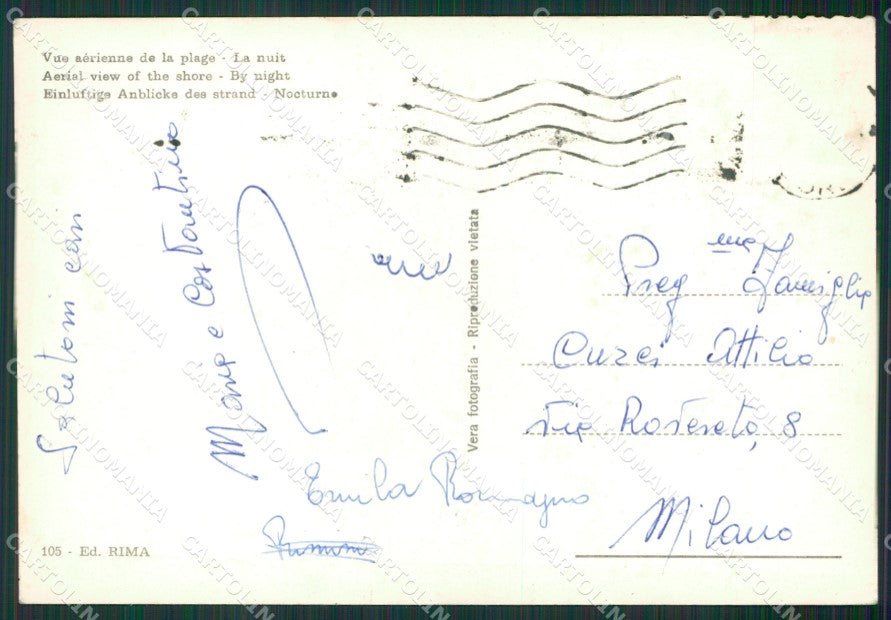 Vue aérienne de la plage - La nuit
Aerial view of the shore - By night
Einluftige Anblicke des strand - Nocturne
Salutoni cari
Mario e Costantino
Vera fotografia - Riproduzione vietata
Preg ma Famiglia
Curci Attilio
Via Rovereto, 8
Milano
Emila Romagna
Rimini
105 - Ed. RIMA
CARTOLINOMANIA